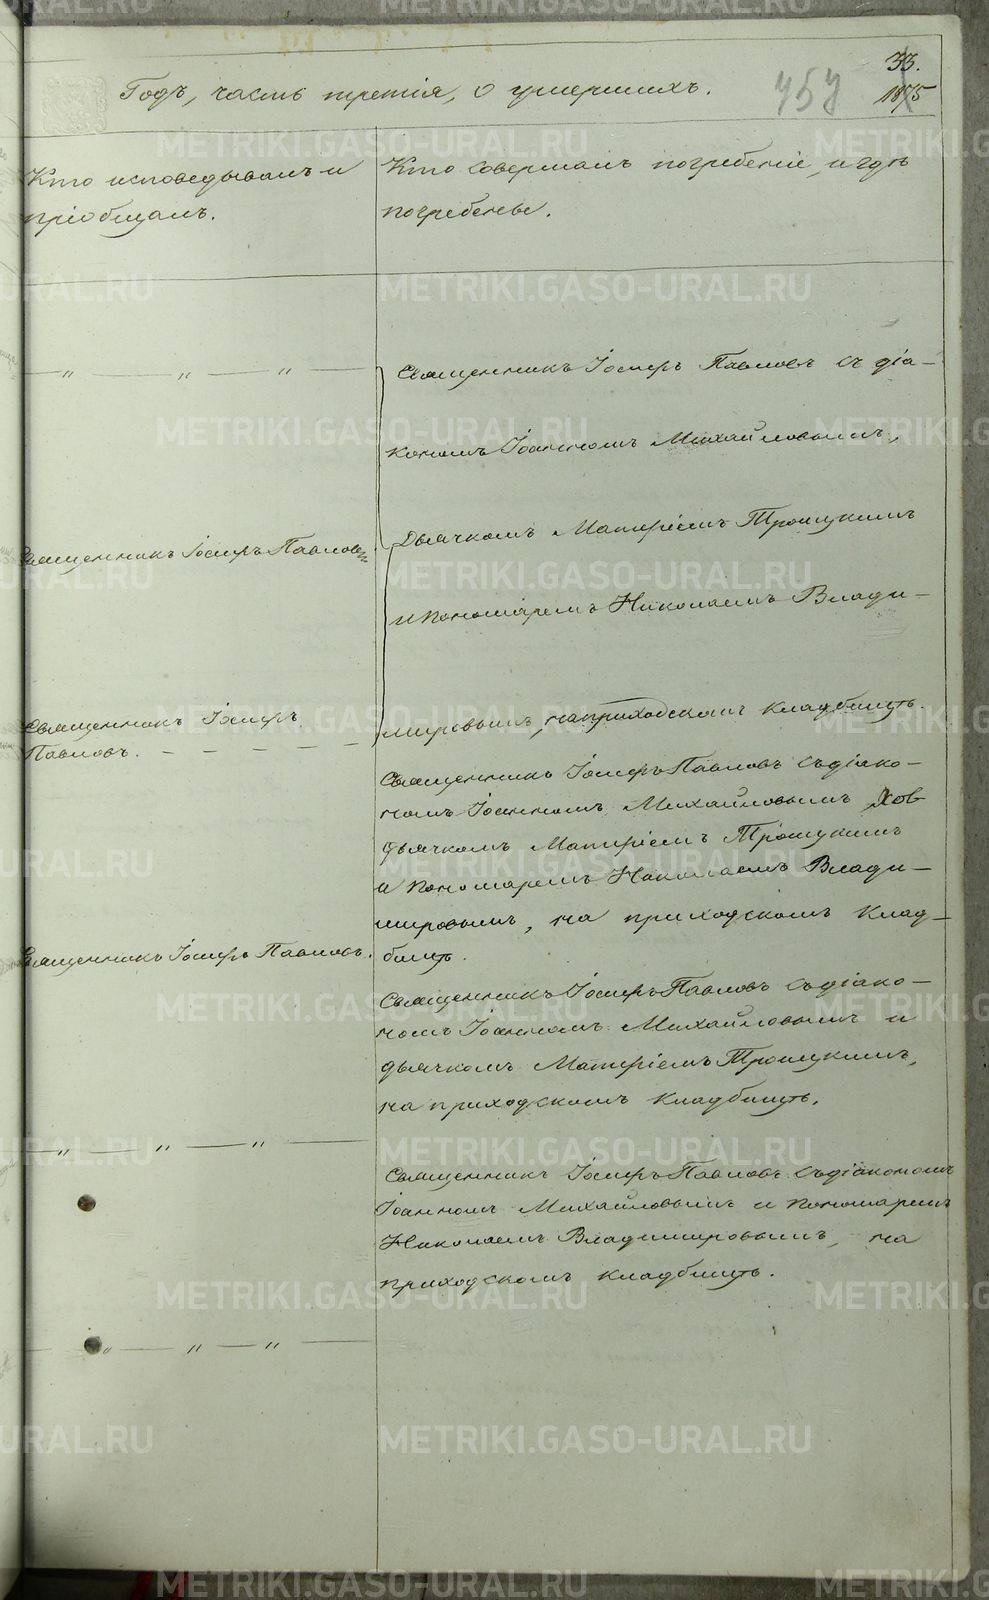 33.
Годъ, часть третія, о умершихъ.
457
1875
Кто исповѣдывалъ и
пріобщалъ.
Кто совершалъ погребеніе, и гдѣ
погребены.
— " — " — " —
Священникъ Іосифъ Павловъ съ діа-
кономъ Іоанномъ Михайловымъ,
Дьячкомъ Матѳіемъ Троицкимъ
Священникъ Іосифъ Павловъ
и пономаремъ Николаемъ Влади-
Священникъ Іосифъ
Павловъ. — — — — —
мировымъ, на приходскомъ кладбищѣ.
Священникъ Іосифъ Павловъ съ діако-
номъ Іоанномъ Михайловымъ
дьячкомъ Матѳіемъ Троицкимъ
и пономаремъ Николаемъ Влади-
мировымъ, на приходскомъ клад-
бищѣ.
Священникъ Іосифъ Павловъ.
Священникъ Іосифъ Павловъ съ діако-
номъ Іоанномъ Михайловымъ и
дьячкомъ Матѳіемъ Троицкимъ,
на приходскомъ кладбищѣ.
— " — " — " —
Священникъ Іосифъ Павловъ съ діакономъ
Іоанномъ Михайловымъ и пономаремъ
Николаемъ Владимировымъ, на
приходскомъ кладбищѣ.
— " — " — " —
METRIKI.GASO-URAL.RU